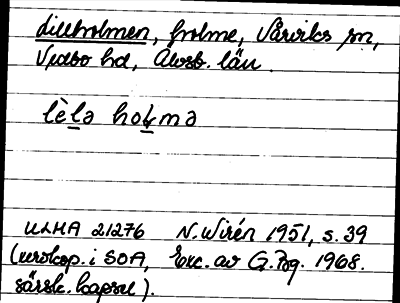 Lillholmen, holme, Vårviks sn,
Vedbo hd, Älvsb. län.
lèl̲ə hoɫ̲mə
ULMA 21276 N. Wirén 1951, s. 39
(verokop. i SOA, Exc. av G. Bg. 1968.
särsk. kapsel).